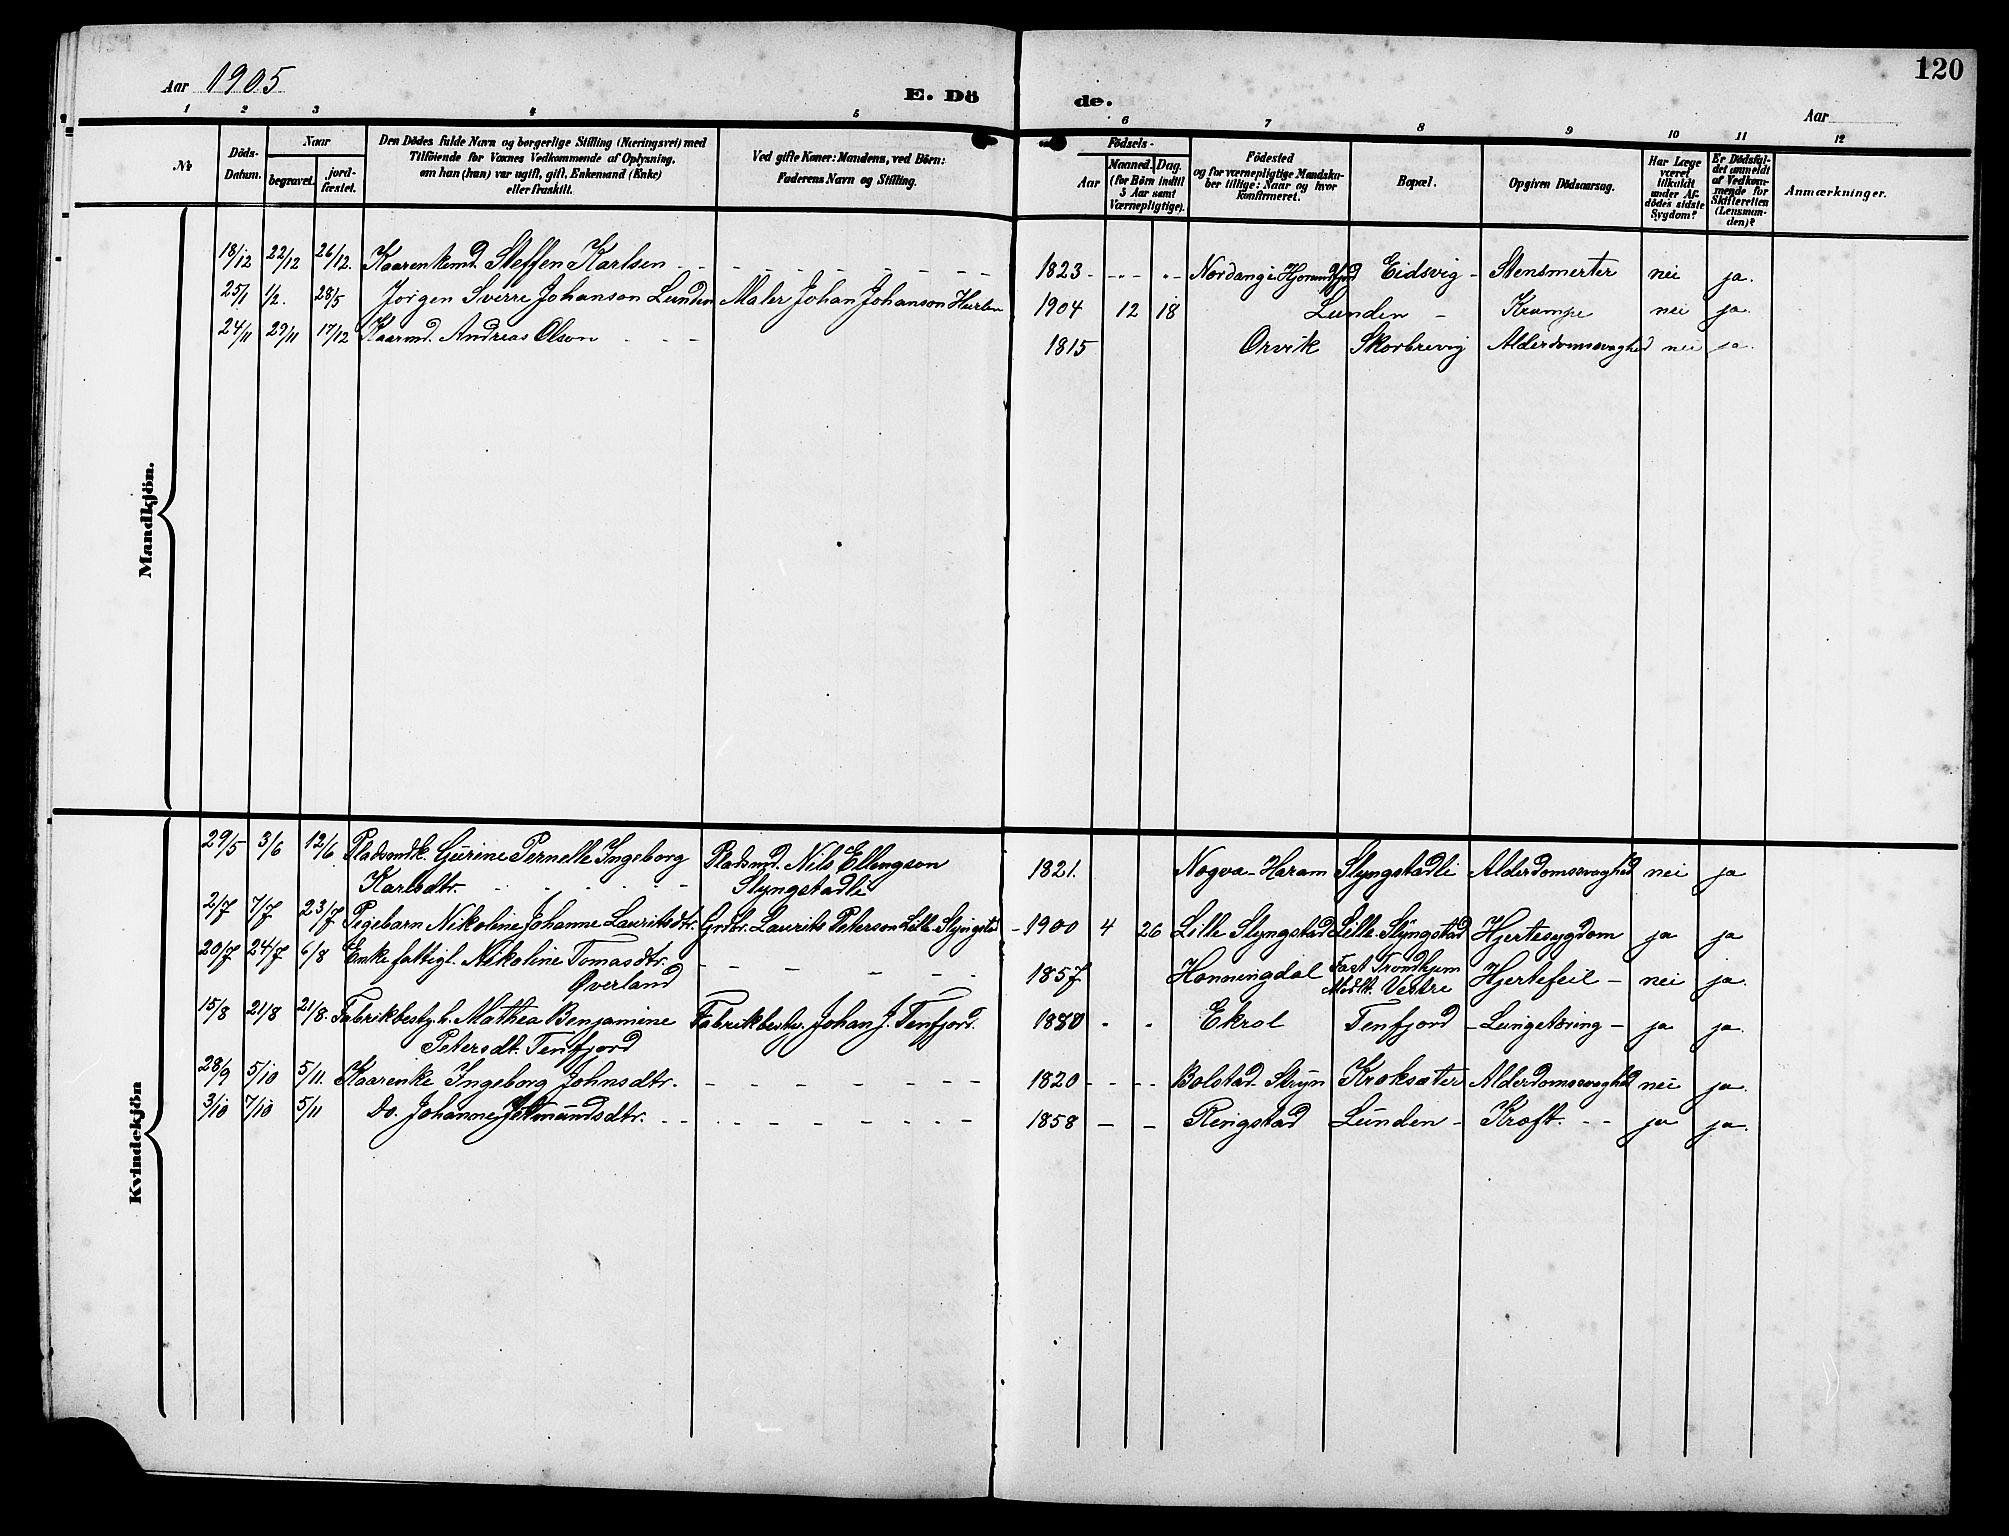 120
Aar 1905
E. Dö de.
Aar
1 2 3 4 5 6 7 8 9 10 11 12
No
Döds-Datum.
Naar
begravet.
jord-fæstet.
Den Dödes fulde Navn og borgerlige Stilling (Næringsvei) med
Tilföiende for Voxnes Vedkommende af Oplysning,
om han (hun) var ugift, gift, Enkemand (Enke)
eller fraskilt.
Ved gifte Koner: Mandens, ved Börn:
Faderens Navn og Stilling.
Födsels-
Aar
Maaned. Dag.
(for Börn indtil
5 Aar samt
Værnepligtige).
Födested
og for værnepligtige Mandska-
ber tillige: Naar og hvor
konfirmeret.
Bopæl.
Opgiven Dödsaarsag.
Har Læge
været
tilkaldt
under Af-
dödes sidste
Sygdom?
Er Dödsfal-
det anmeldt
af Vedkom-
mende for
Skifteretten
(Lensman-
den)?
Anmærkninger.
Mandkjön.
18/12 22/12 26/12. Kaarenkemd. Steffen Karlsen - - - - - - - - 1823 - -"- "- Nordang i Hjorundfjord Eidsvig - Stensmerter nei ja.
25/1 1/2. 28/5 Jörgen Sverre Johanson Lunden Maler Johan Johanson Hurlen 1904 12 18 Lunden - Krampe nei ja.
24/11 29/11 17/12 Kaarmd. Andreas Olson - - - 1815 Orvik Skorbrevig Alderdomssvaghed nei ja.
Kvindekjön
29/5 3/6 12/6. Pladsmdk. Gurine Pernelle Ingeborg Pladsmd. Nils Ellingson 1821. Nogva - Haram Slyngstadli Alderdomssvaghed nei ja
Karlsdtr. - - - - - Slyngstadli
2/7 7/7 23/7 Pigebarn Nikoline Johanne Lauritsdtr. Grdbr. Laurits Peterson Lille-Slyngstad - 1900 4 26 Lille Slyngstad Lille-Slyngstad Hjertesygdom ja ja
20/7 24/7 6/8 Enke fattigl. Nikoline Tomasdtr. - - - - - 1857 Honningdal Fast Trondhjem Hjertefeil - nei ja.
Överland Midlt. Vestre
15/8 21/8 21/8. Fabrikbest. h. Mathea Benjamine Fabrikbest. Johan J. Tenfjord. 1880 - - Ekrol Tenfjord - Lungetæring - ja ja.
Petersdt. Tenfjord
28/9 5/10 5/11. Kaarenke Ingeborg Johnsdtr. - - - - - - - 1820 - - - - Bolstad. Stryn Kroksæter Alderdomssvaghed nei ja.
3/10 7/10 5/11 Do. Johanne Jetmundsdtr. - - - - - - - - 1858 - - Ringstad Lunden - Kræft. - - ja ja.